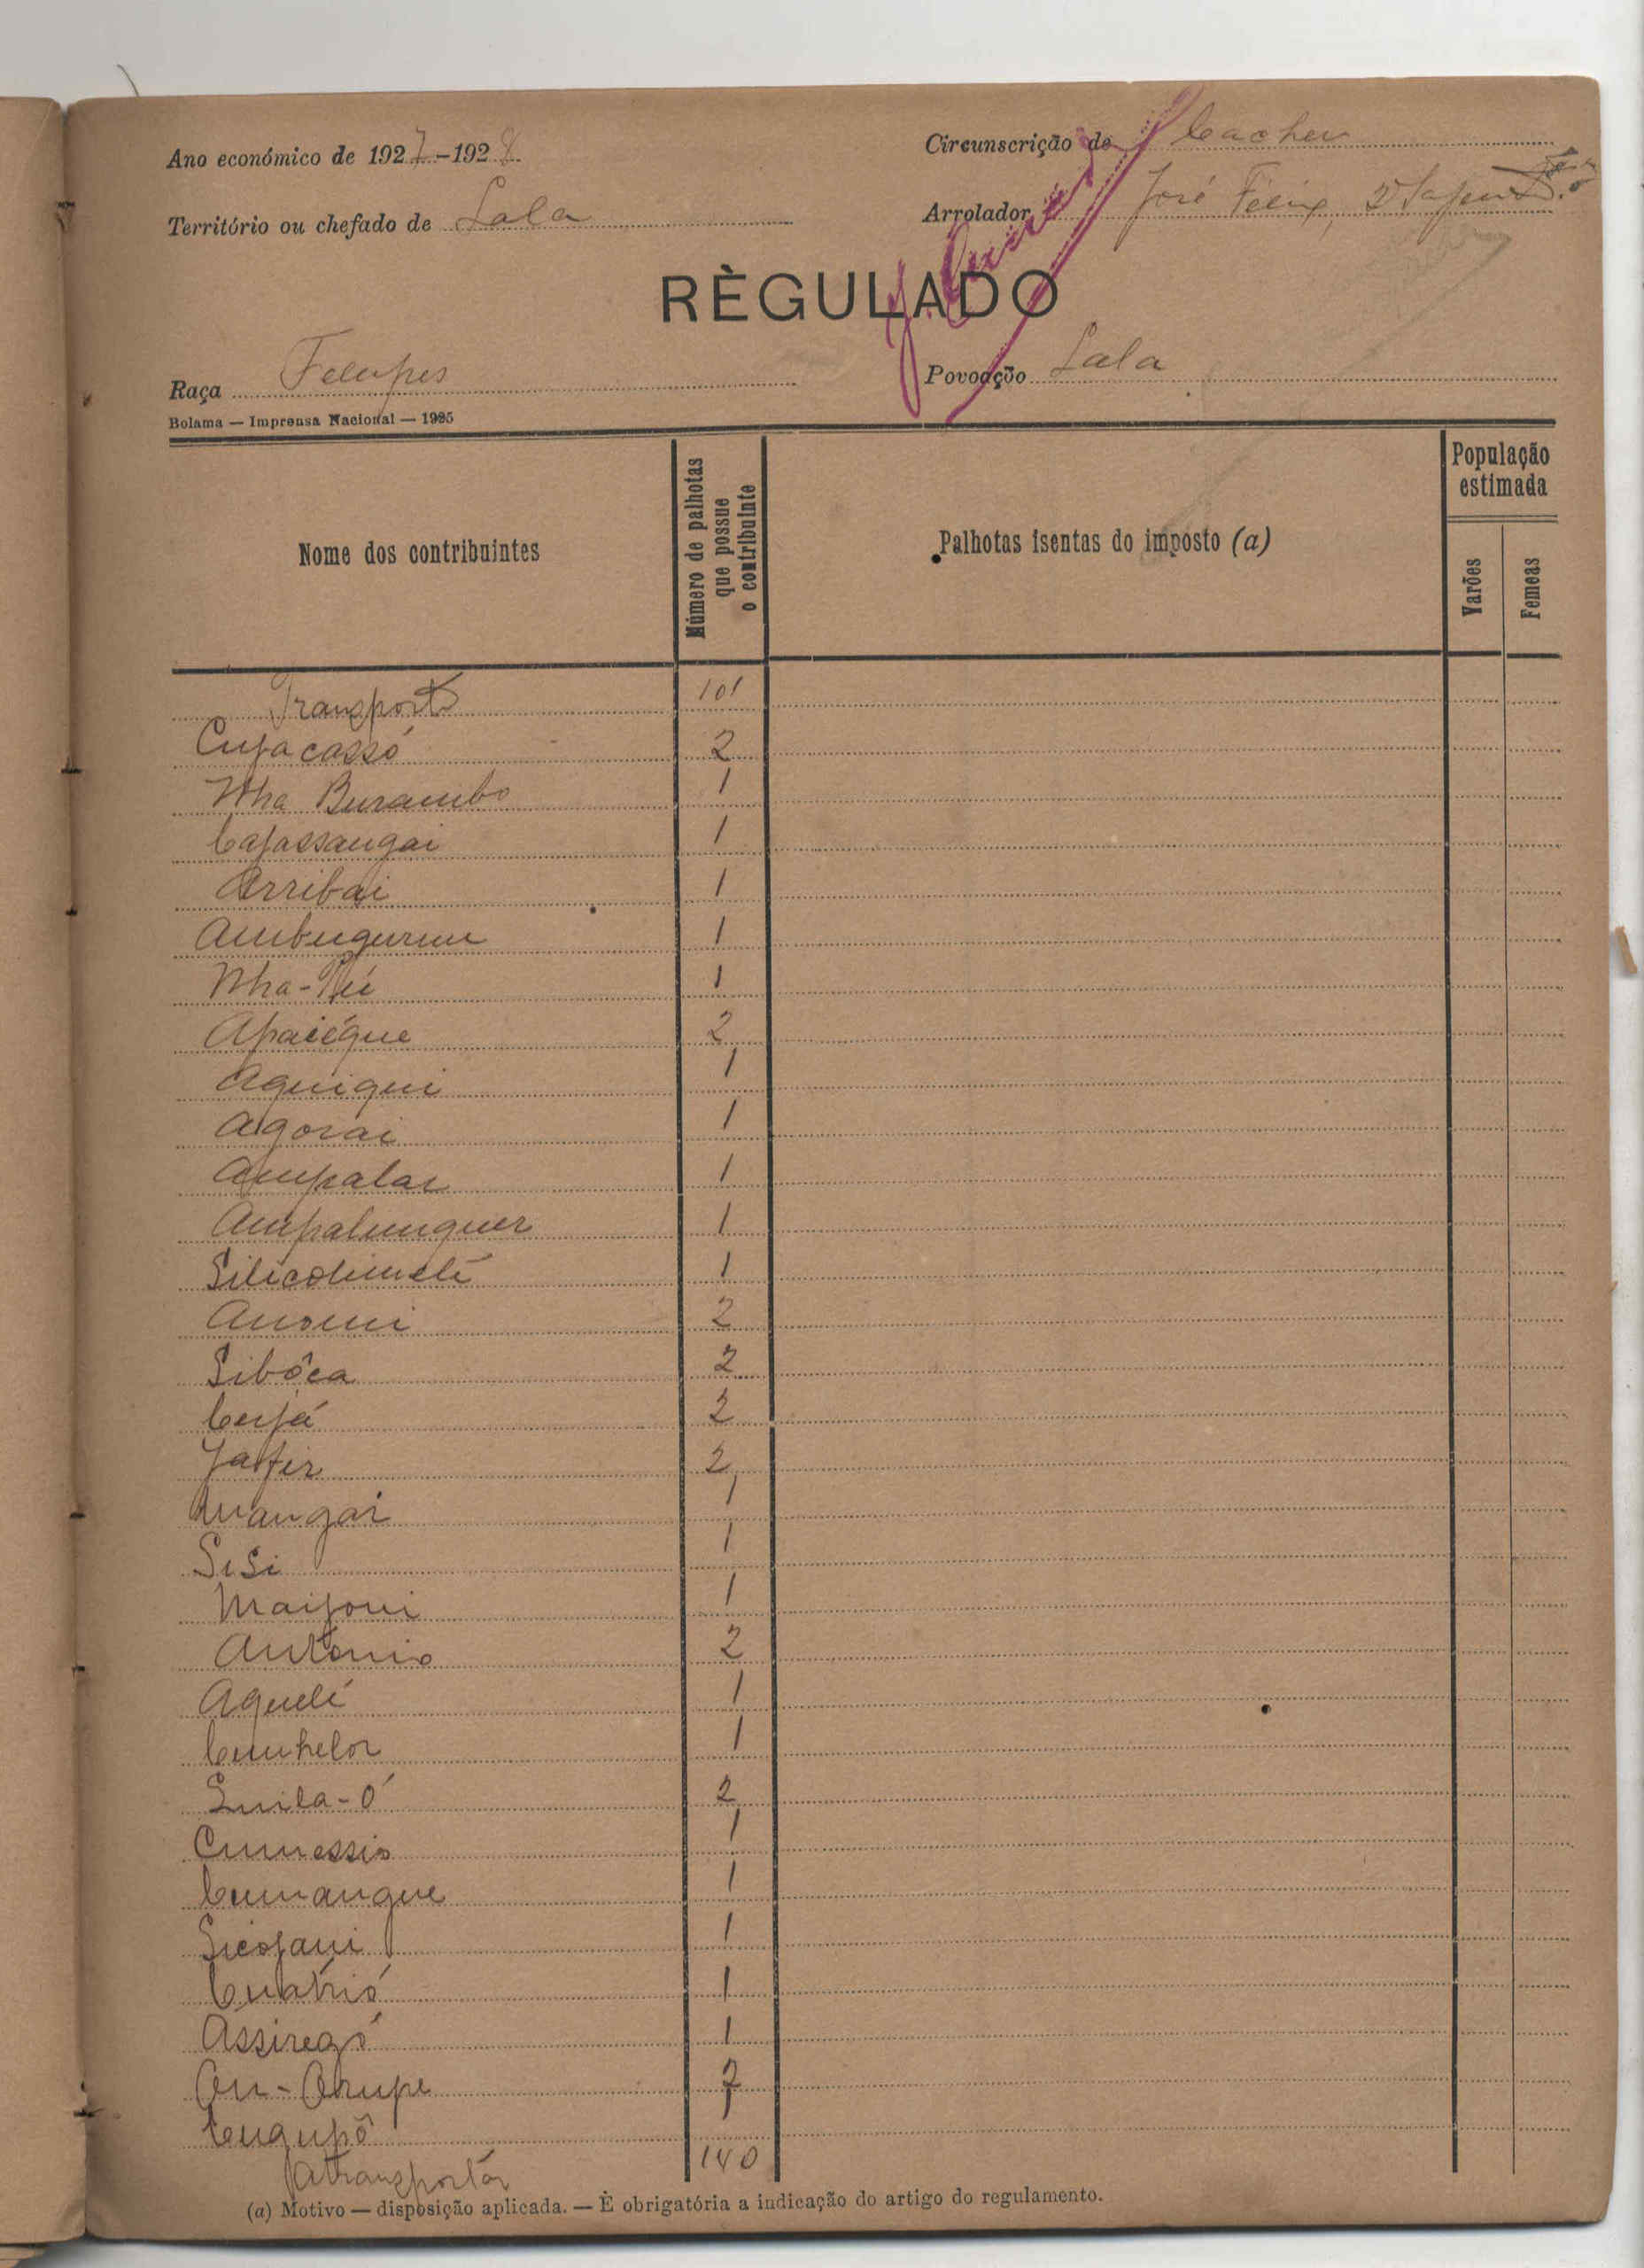 Ano económico de 1927-1928
Circunscrição de Cacheu
Território ou chefado de Lala
Arrolador José Felix, 2º
RÈGULADO
Raça Felupes
Povoação Lala
Bolama — Imprensa Nacional — 1925
Nome dos contribuintes
Número de palhotas que possue o contribuinte
Palhotas isentas do imposto (a)
População estimada
Varões
Femeas
Transporte 101
Cufacassó 2
Nha Burambo 1
Cafassangai 1
Arribai 1
Ambugurum 1
Nha- 1
Apaiéque 2
Aquiqui 1
Agorai 1
Ampalar 1
Ampalunguer 1
1
Anomi 2
Sibôca 2
Cujá 2
Jafir 2
1
SiSi 1
Maifoni 1
António 2
Aquelé 1
Cunhelor 1
2
Cumessio 1
Cumangue 1
Sicofani 1
Cuatrió 1
Assiregó 1
An-Arupe 2
Cugupô 1
A transportar 140
(a) Motivo — disposição aplicada. — È obrigatória a indicação do artigo do regulamento.